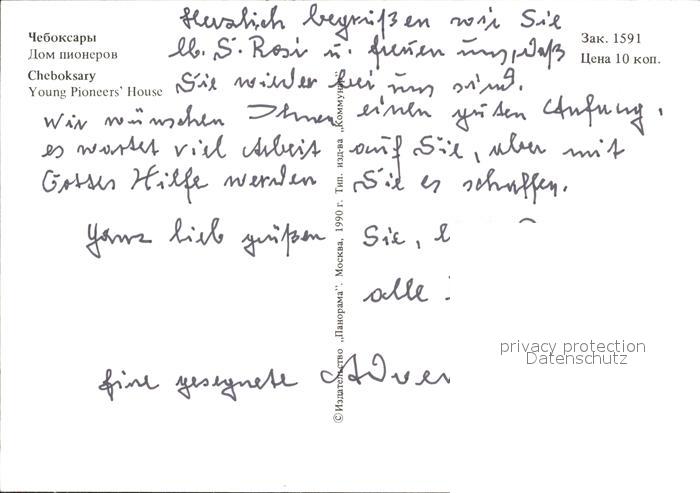 Herzlich begrüßen wir Sie
lb. S. Rosi u. freuen uns, daß
Sie wieder bei uns sind.
Wir wünschen Ihnen einen guten Anfang,
es wartet viel Arbeit auf Sie, aber mit
Gottes Hilfe werden Sie es schaffen.
Ganz lieb grüßen Sie,
alle
Eine gesegnete Adven
Чебоксары
Дом пионеров
Cheboksary
Young Pioneers' House
Зак. 1591
Цена 10 коп.
© Издательство „Панорама". Москва, 1990 г. Тип. изд-ва „Коммунист"
privacy protection
Datenschutz